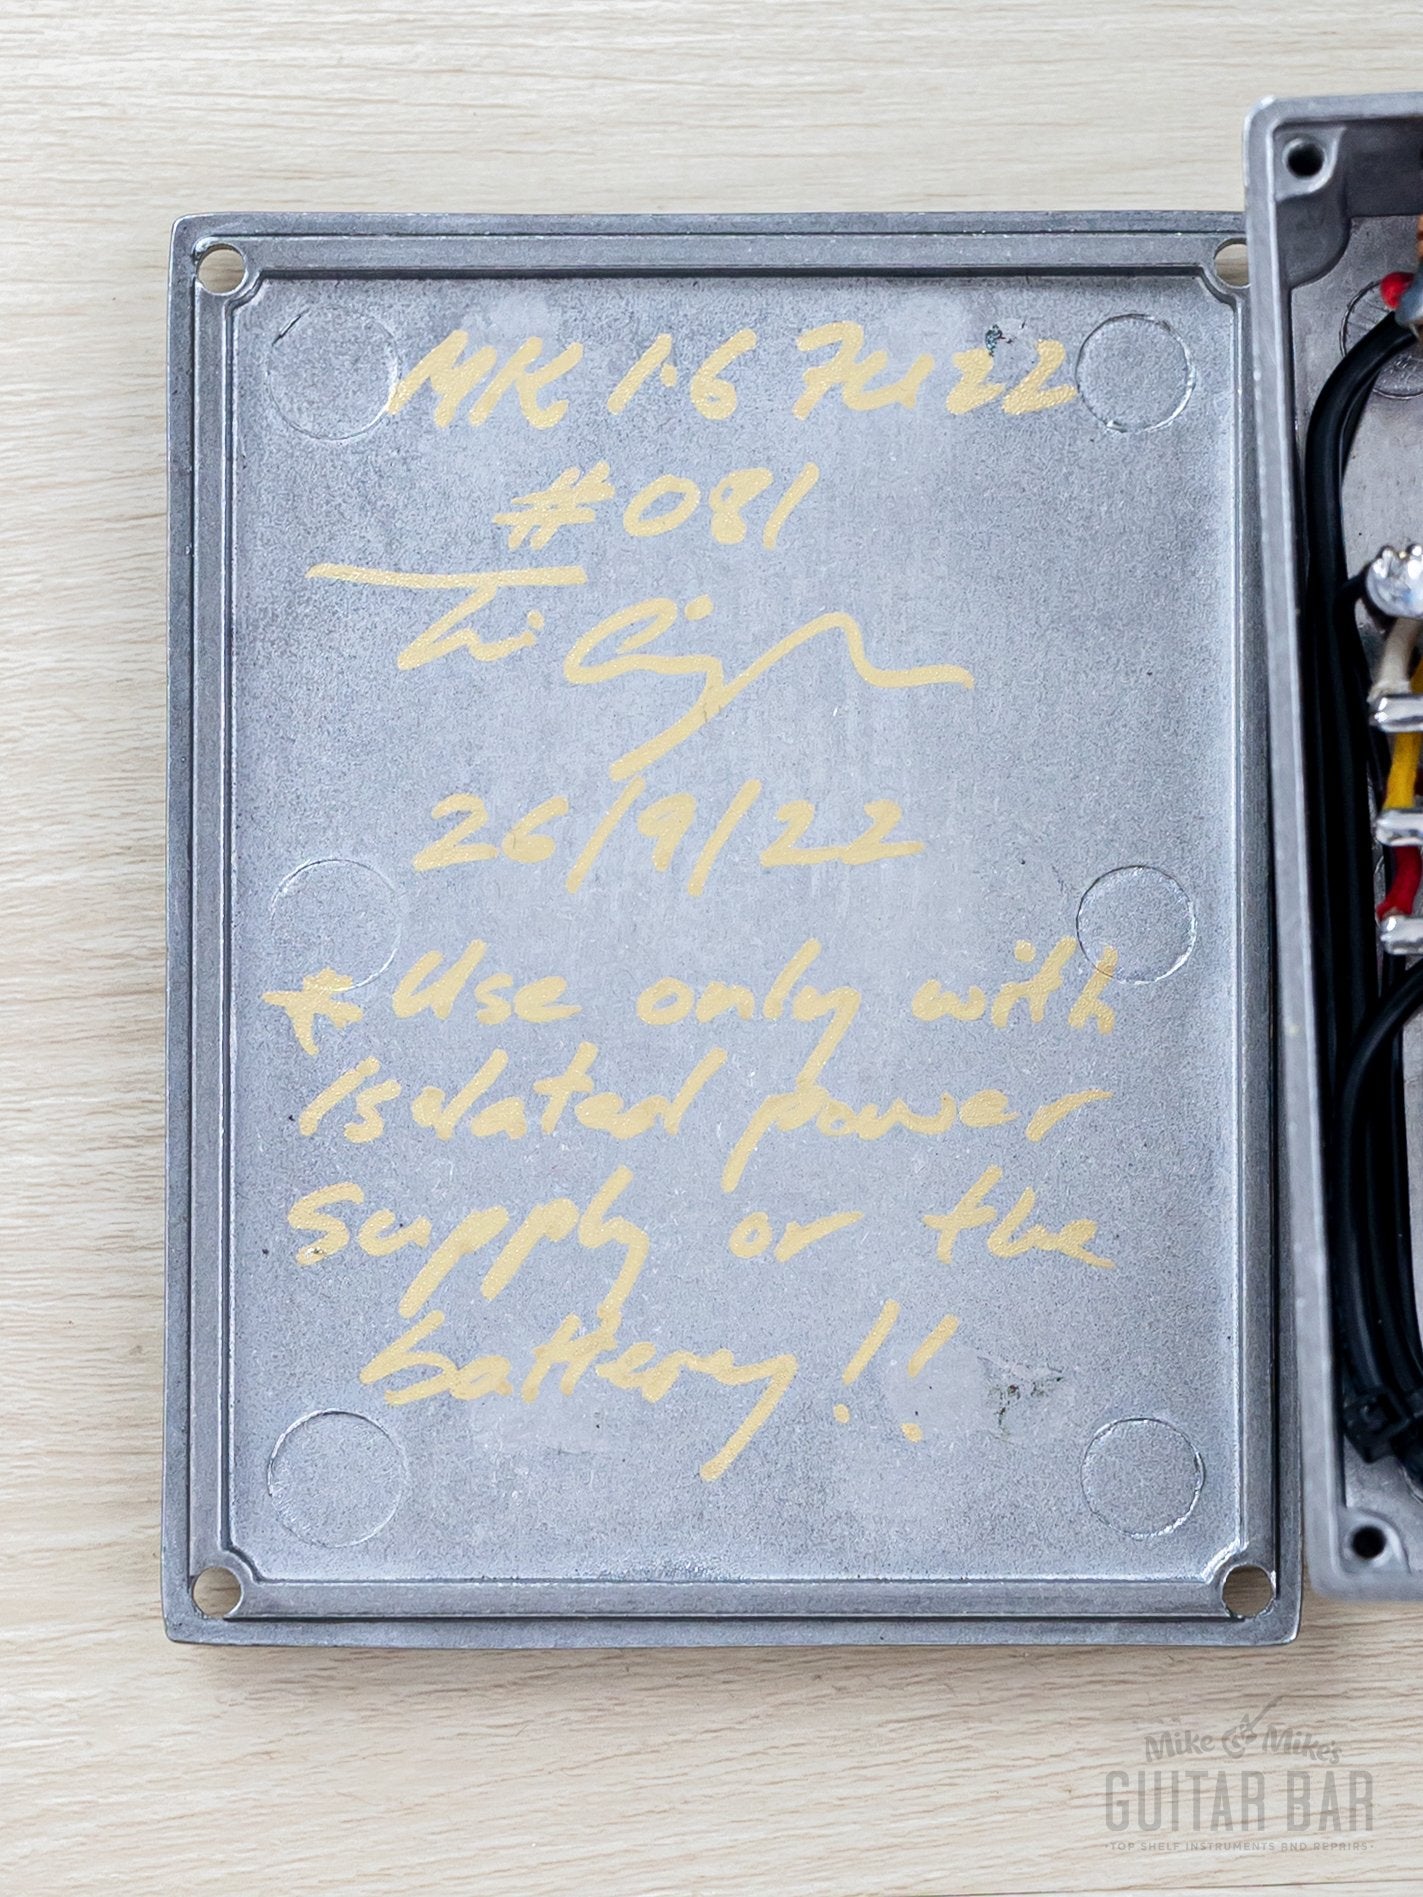 MK 1.6 Fuzz
#081
26/9/22
* Use only with
isolated power
supply or the
battery!!
Mike & Mike's
GUITAR BAR
·TOP SHELF INSTRUMENTS AND REPAIRS·